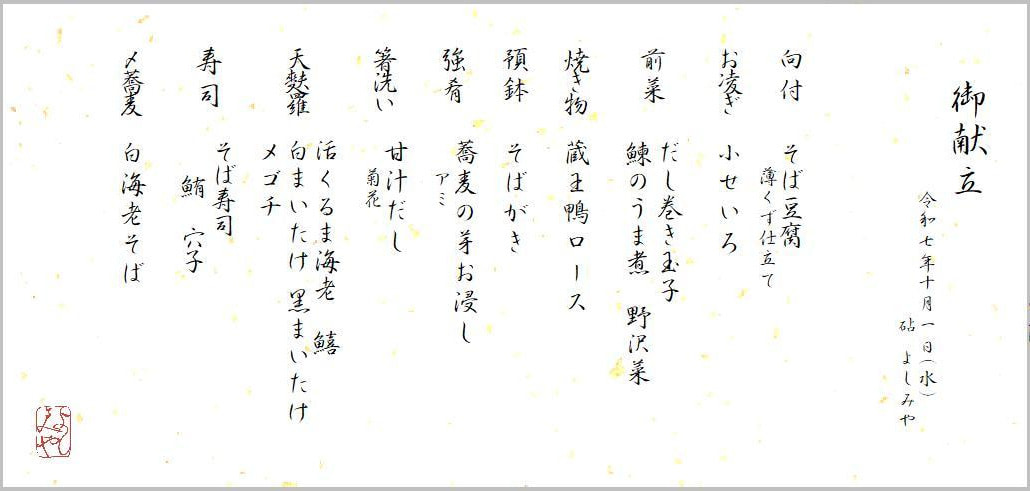 御献立
令和七年十月一日(水)
砧 よしみや
向付 そば豆腐
薄くず仕立て
お凌ぎ 小せいろ
前菜 だし巻き玉子
鰊のうま煮 野沢菜
焼き物 蔵王鴨ロース
預鉢 そばがき
強肴 蕎麦の芽お浸し
アミ
箸洗い 甘汁だし
菊花
天麩羅 活くるま海老 鱚
白まいたけ 黒まいたけ
メゴチ
寿司 そば寿司
鮪 穴子
〆蕎麦 白海老そば